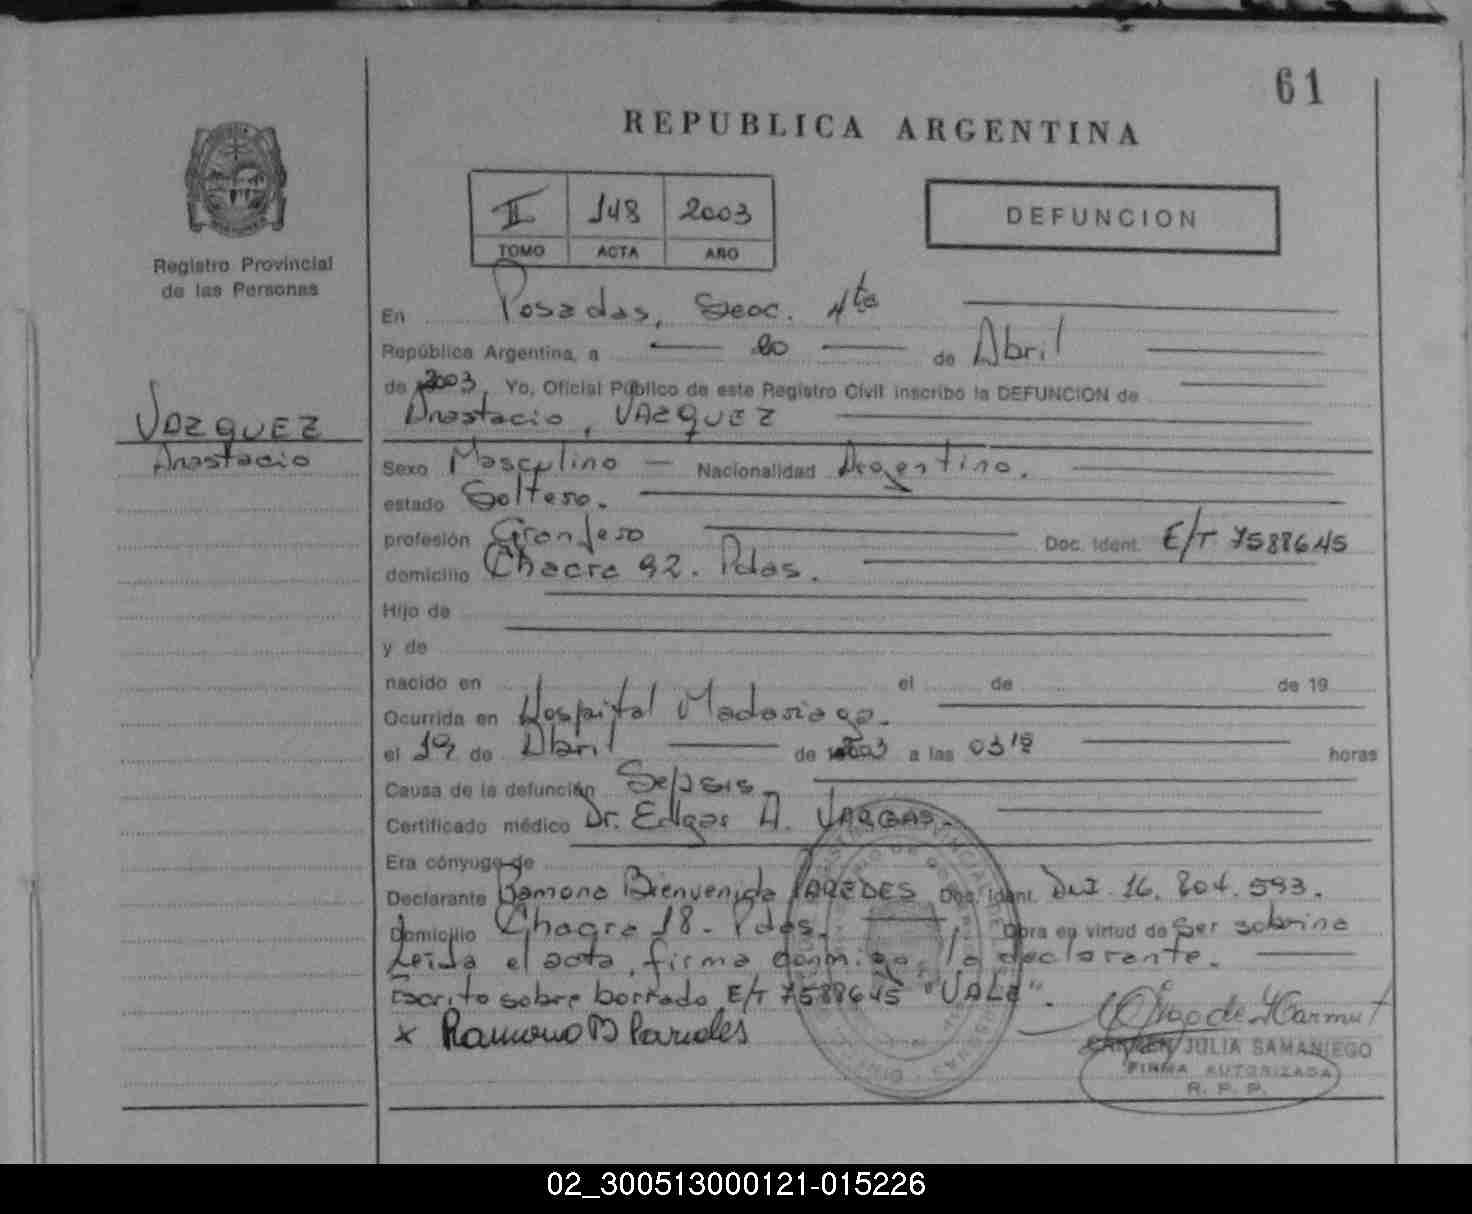 61
REPUBLICA ARGENTINA
II 148 2003
TOMO ACTA AÑO
DEFUNCION
Registro Provincial
de las Personas
VAZQUEZ
Anastacio
En Posadas, Secc. 4ta
República Argentina, a 20 de Abril
de 2003, Yo, Oficial Público de este Registro Civil inscribo la DEFUNCION de
Anastacio, VAZQUEZ
Sexo Masculino — Nacionalidad Argentino.
estado Soltero.
profesión Granjero Doc. Ident. E/T 7588645
domicilio Chacra 92. Pdas.
Hijo de
y de
nacido en el de de 19
Ocurrida en Hospital Madariaga.
el 19 de Abril de 2003 a las 03 15 horas
Causa de la defunción Sepsis
Certificado médico Dr. Edgar A. VARGAS.
Era cónyuge de
Declarante Ramona Bienvenida PAREDES Doc. Ident. DNI. 16.204.593.
Domicilio Chacra 18. Pdas. Obra en virtud de Ser sobrina
Leida el acta, firma conmigo la declarante.
Escrito sobre borrado E/T 7588645 "VALE".
x Ramona B Paredes
CARMEN JULIA SAMANIEGO
FIRMA AUTORIZADA
R. P. P.
02_300513000121-015226